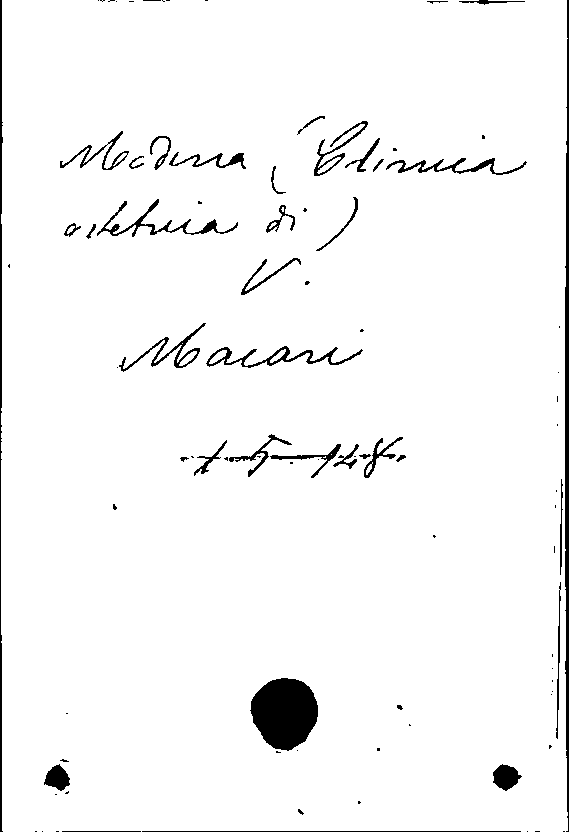 Modena (Clinica
ostetrica di)
V.
Macari
1-5-148.